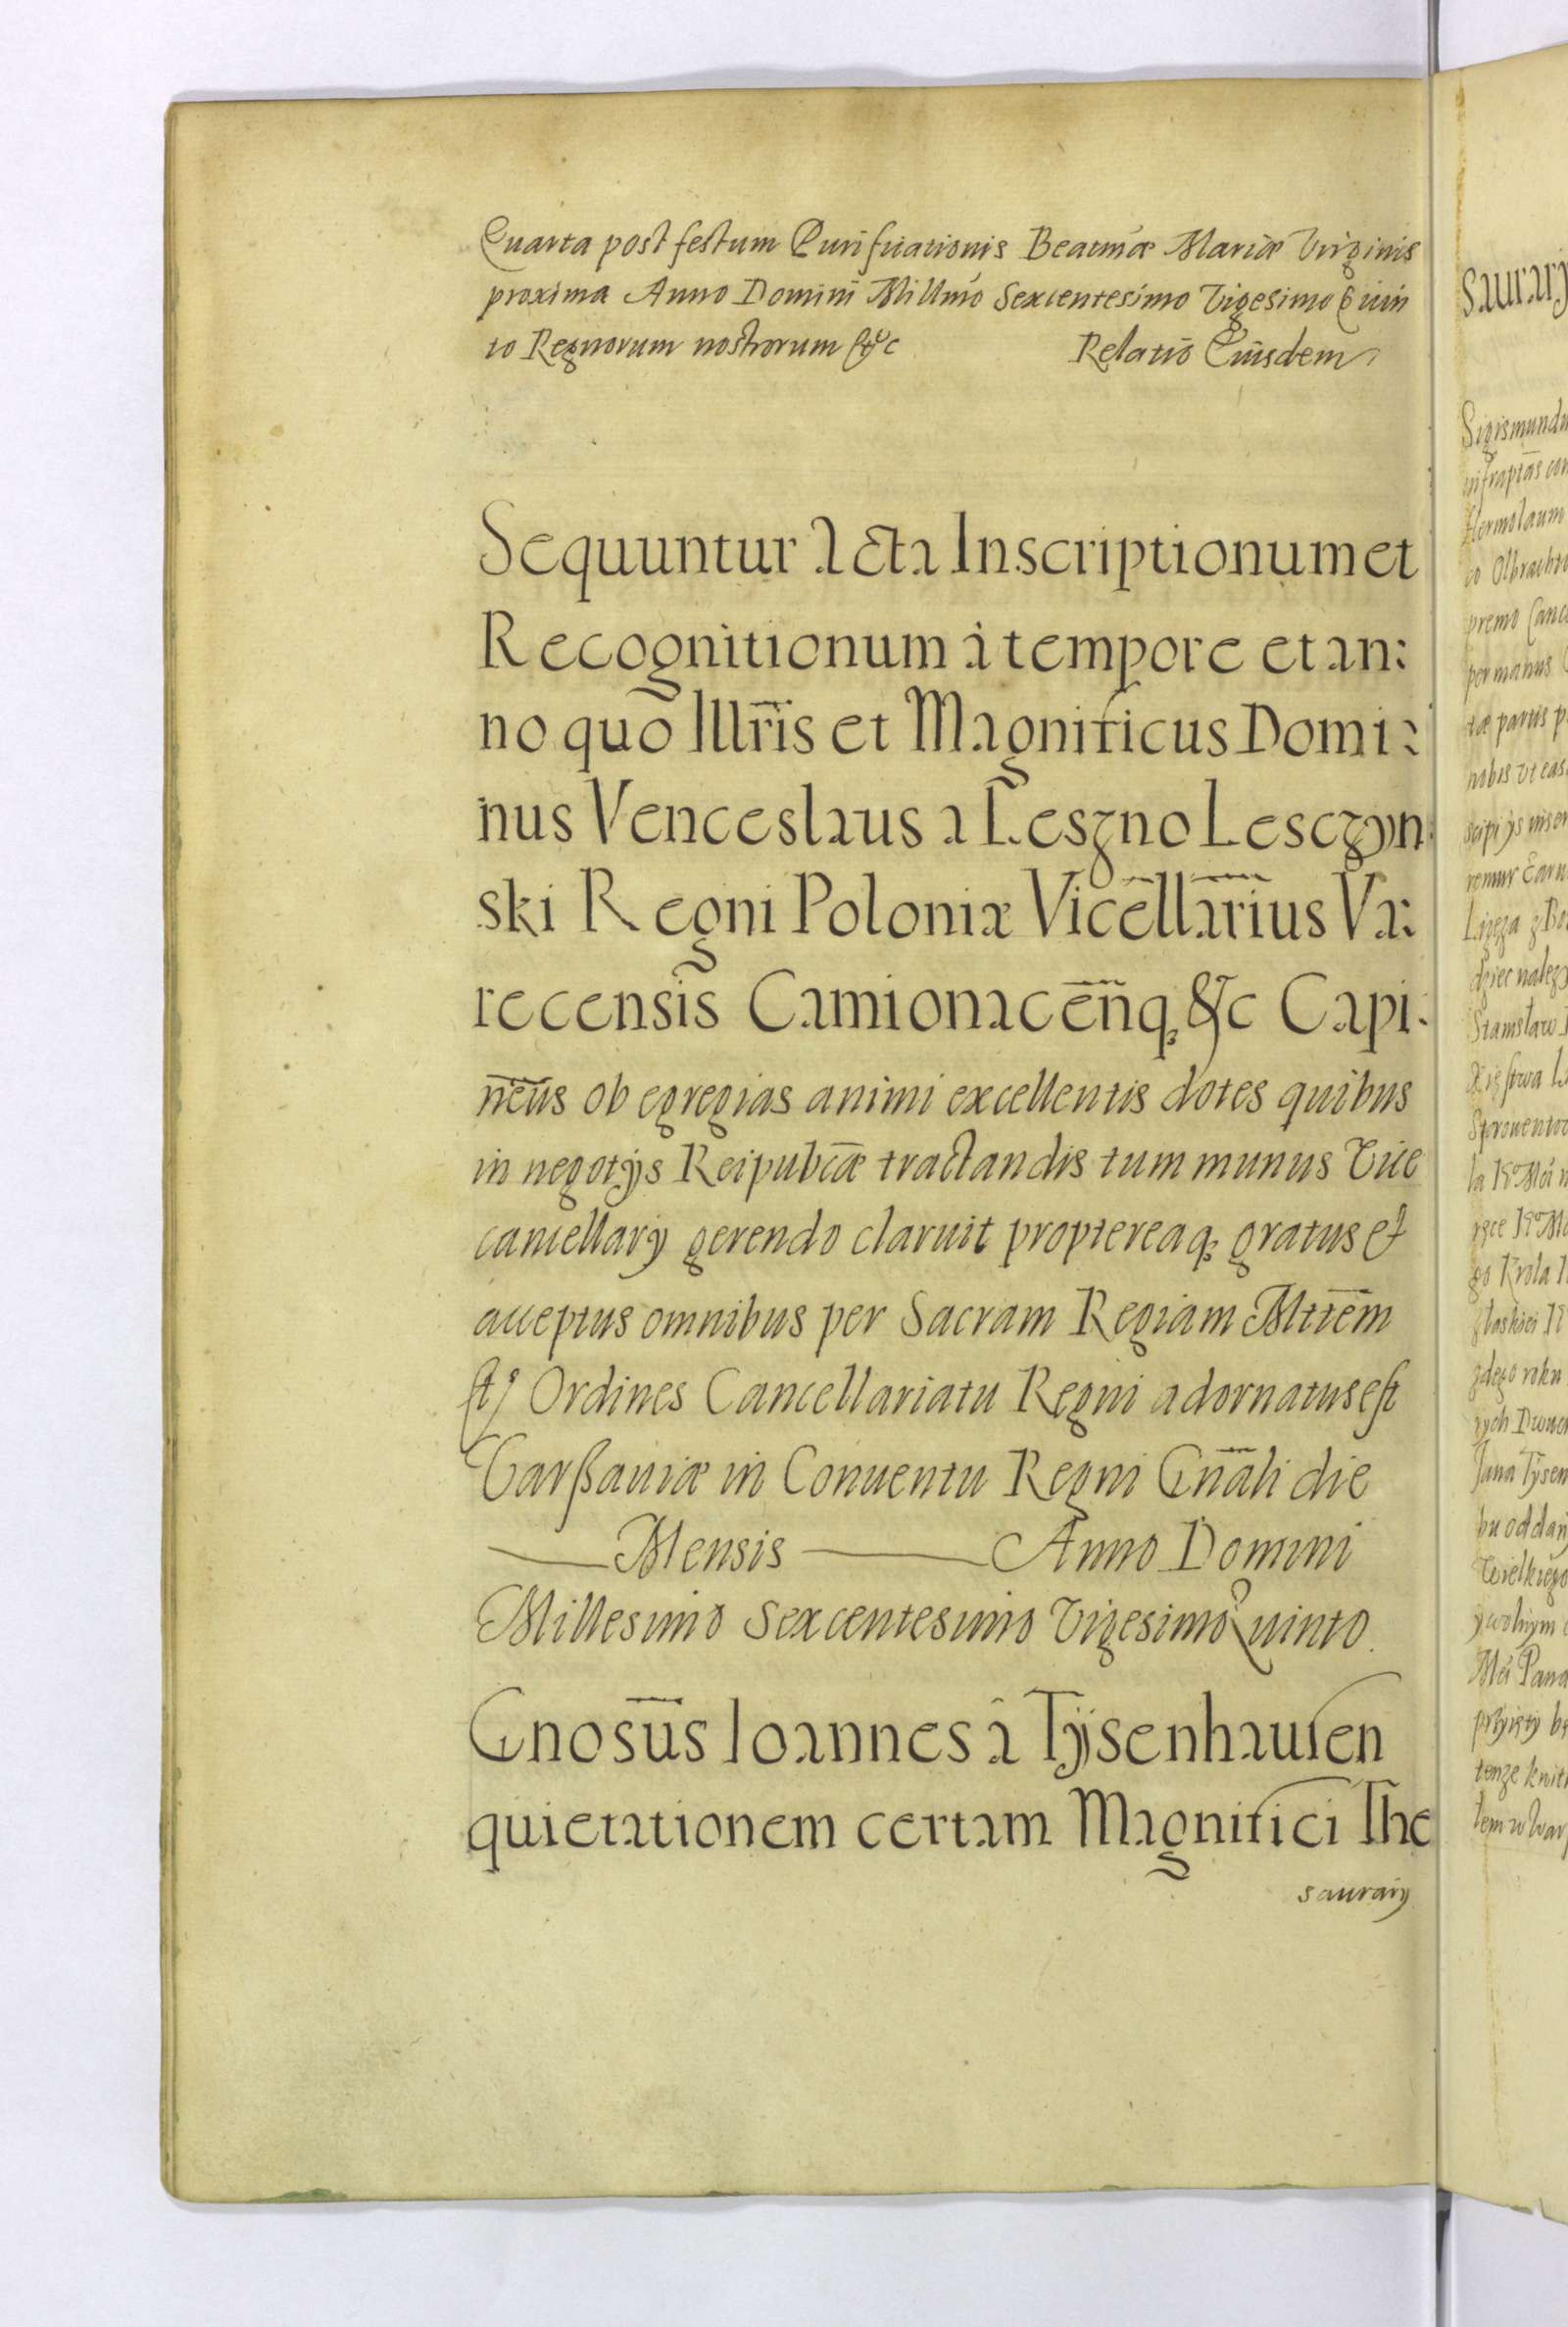 Quarta post festum Purificationis Beatmæ Mariæ Virginis
proxima Anno Domini Millmo Sexcentesimo Vigesimo Quin
to Regnorum nostrorum &c Relatio Eiusdem
Sequuntur Acta Inscriptionum et
Recognitionum à tempore et an:
no quo Illr̃is et Magnificus Domi:
nus Venceslaus a Leszno Lesczyn:
ski Regni Poloniæ Vicẽllãrius Va:
recensis Camionacẽnq₃ &c Capi:
nẽus ob egregias animi excellentis dotes quibus
in negotÿs Reipubcæ tractandis tum munus Vice
cancellarÿ gerendo claruit proptereaq₃ gratus et
acceptus omnibus per Sacram Regiam Mttem
et Ordines Cancellariatu Regni adornatus est
Varßauiæ in Conuentu Regni Gnãli die
Mensis Anno Domini
Millesimo Sexcentesimo Vigesimo Quinto.
Gnosũs Ioannes â Tÿsenhausen
quietationem certam Magnifici The
saurarÿ
saurarÿ
Sigismundu
infraptas con
Hermolaum
co Olbrachto
premo Canc
per manus
tæ partis p
nobis vt eas
Stanisław
go Krola
zdego roku
Jana Tÿsen
bu oddan
Wielkiego
Mći Pana